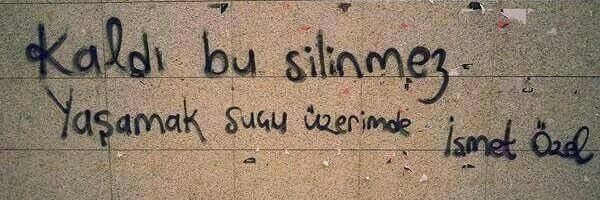 Kaldı bu silinmez
Yaşamak suçu üzerimde
İsmet Özel